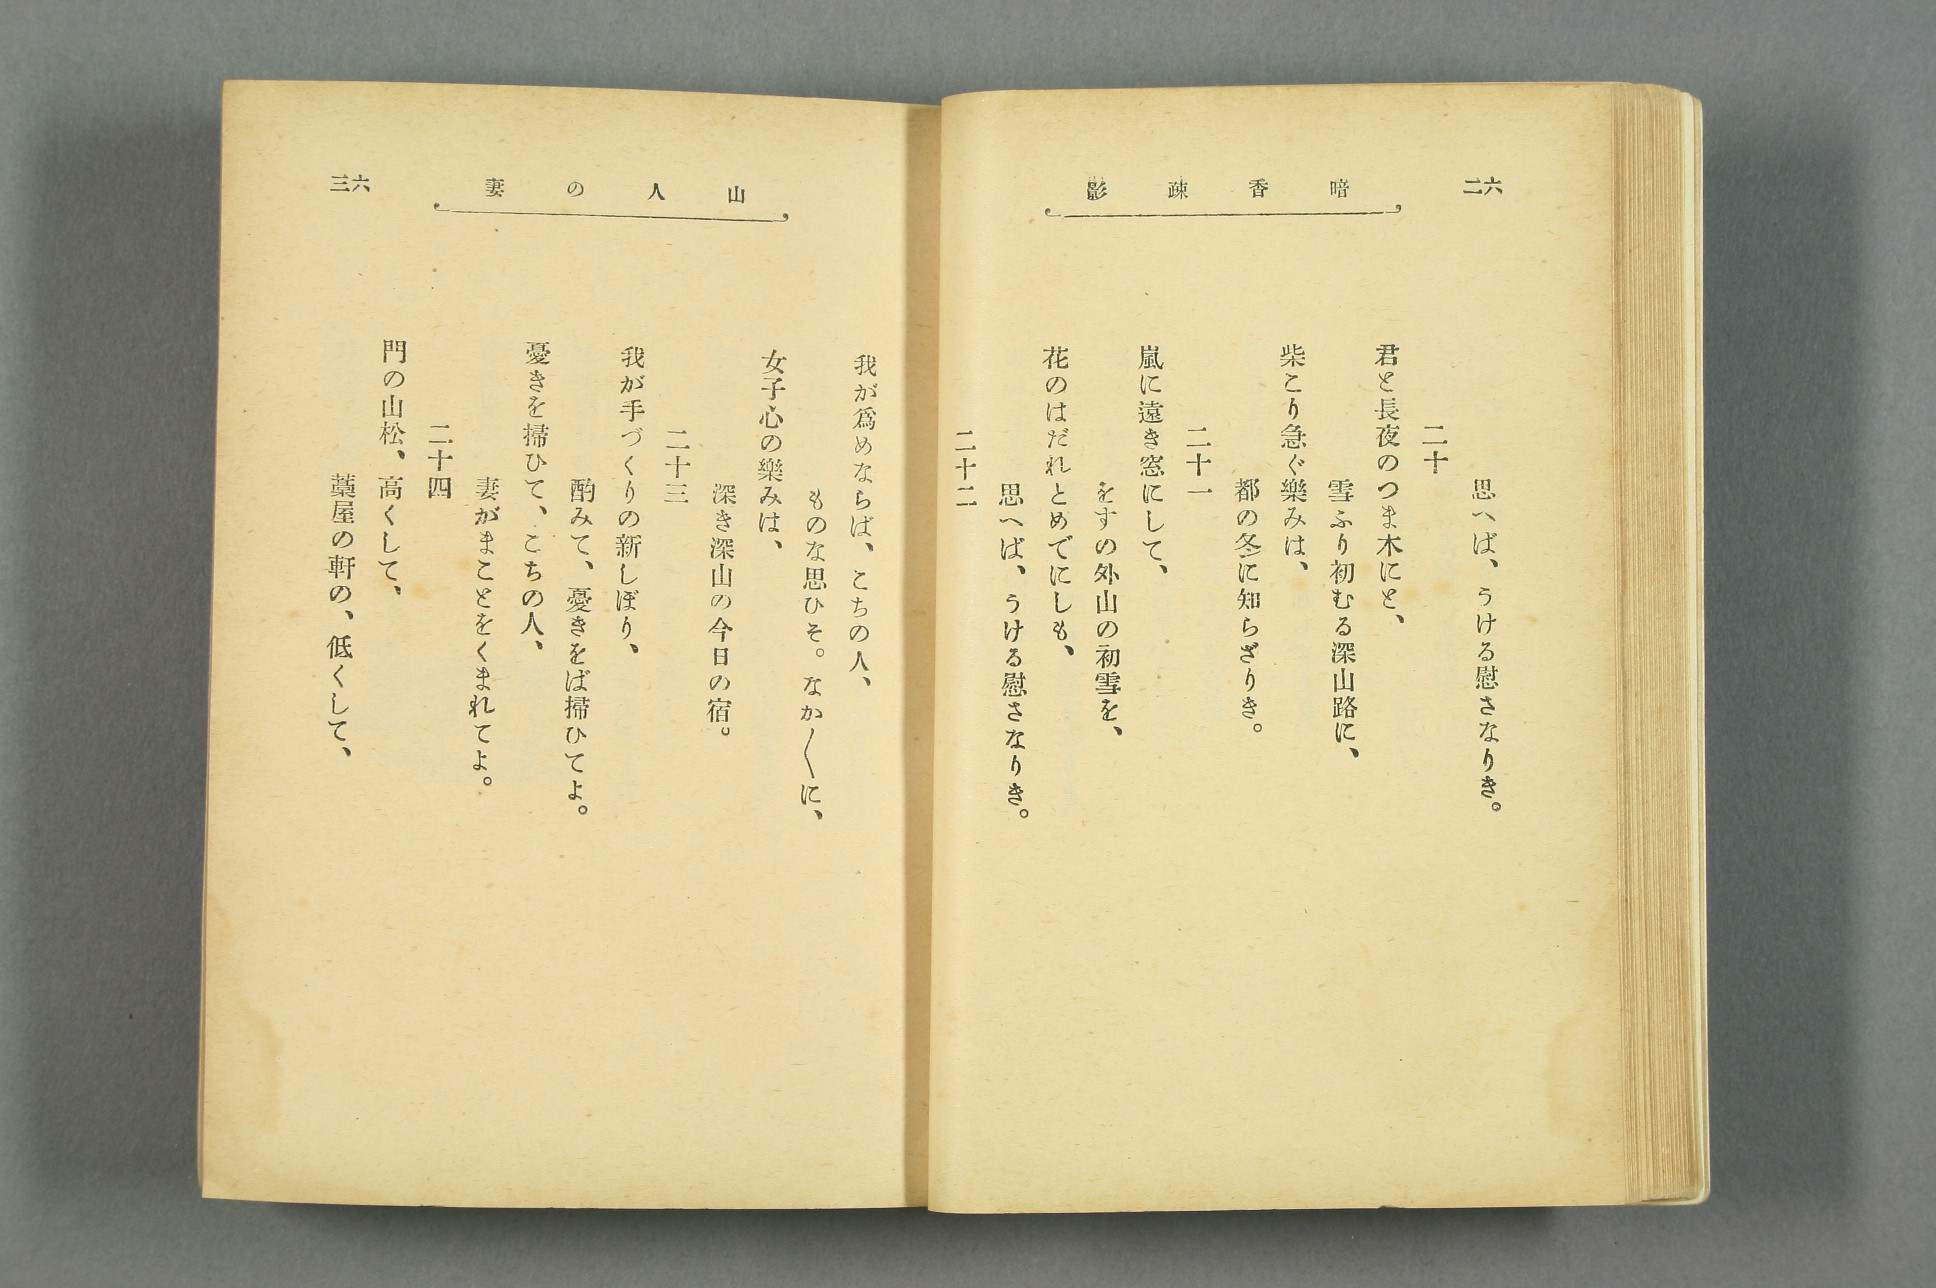 六二
暗香疎影
思へば、うける慰さなりき。
二十
君と長夜のつま木にと、
雪ふり初むる深山路に、
柴こり急ぐ樂みは、
都の冬に知らざりき。
二十一
嵐に遠き窓にして、
をすの外山の初雪を、
花のはだれとめでにしも、
思へば、うける慰さなりき。
二十二
山人の妻
六三
我が爲めならば、こちの人、
ものな思ひそ。なか〱に、
女子心の樂みは、
深き深山の今日の宿。
二十三
我が手づくりの新しぼり、
酌みて、憂きをば掃ひてよ。
憂きを掃ひて、こちの人、
妻がまことをくまれてよ。
二十四
門の山松、高くして、
藁屋の軒の、低くして、